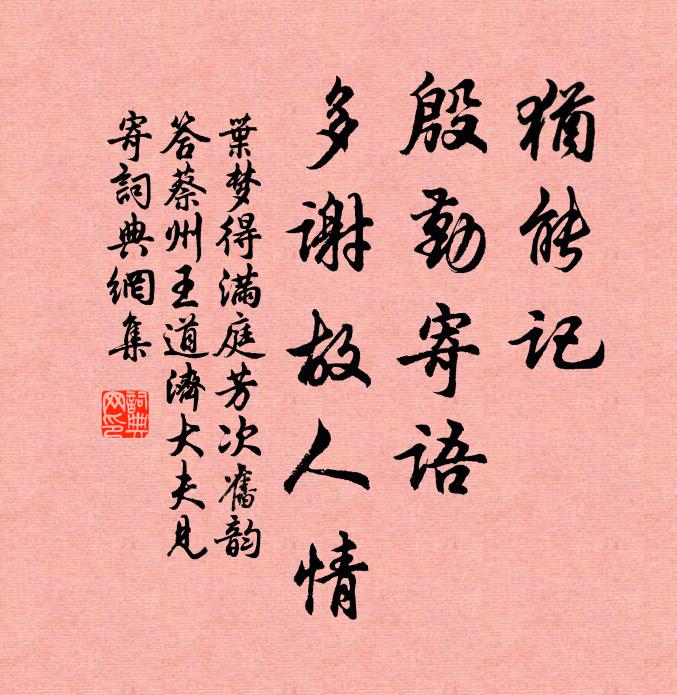 猶能記
殷勤寄語
多謝故人情
葉梦得滿庭芳次舊韵
答蔡州王道濟大夫見
寄詞典網集
詞典
网印